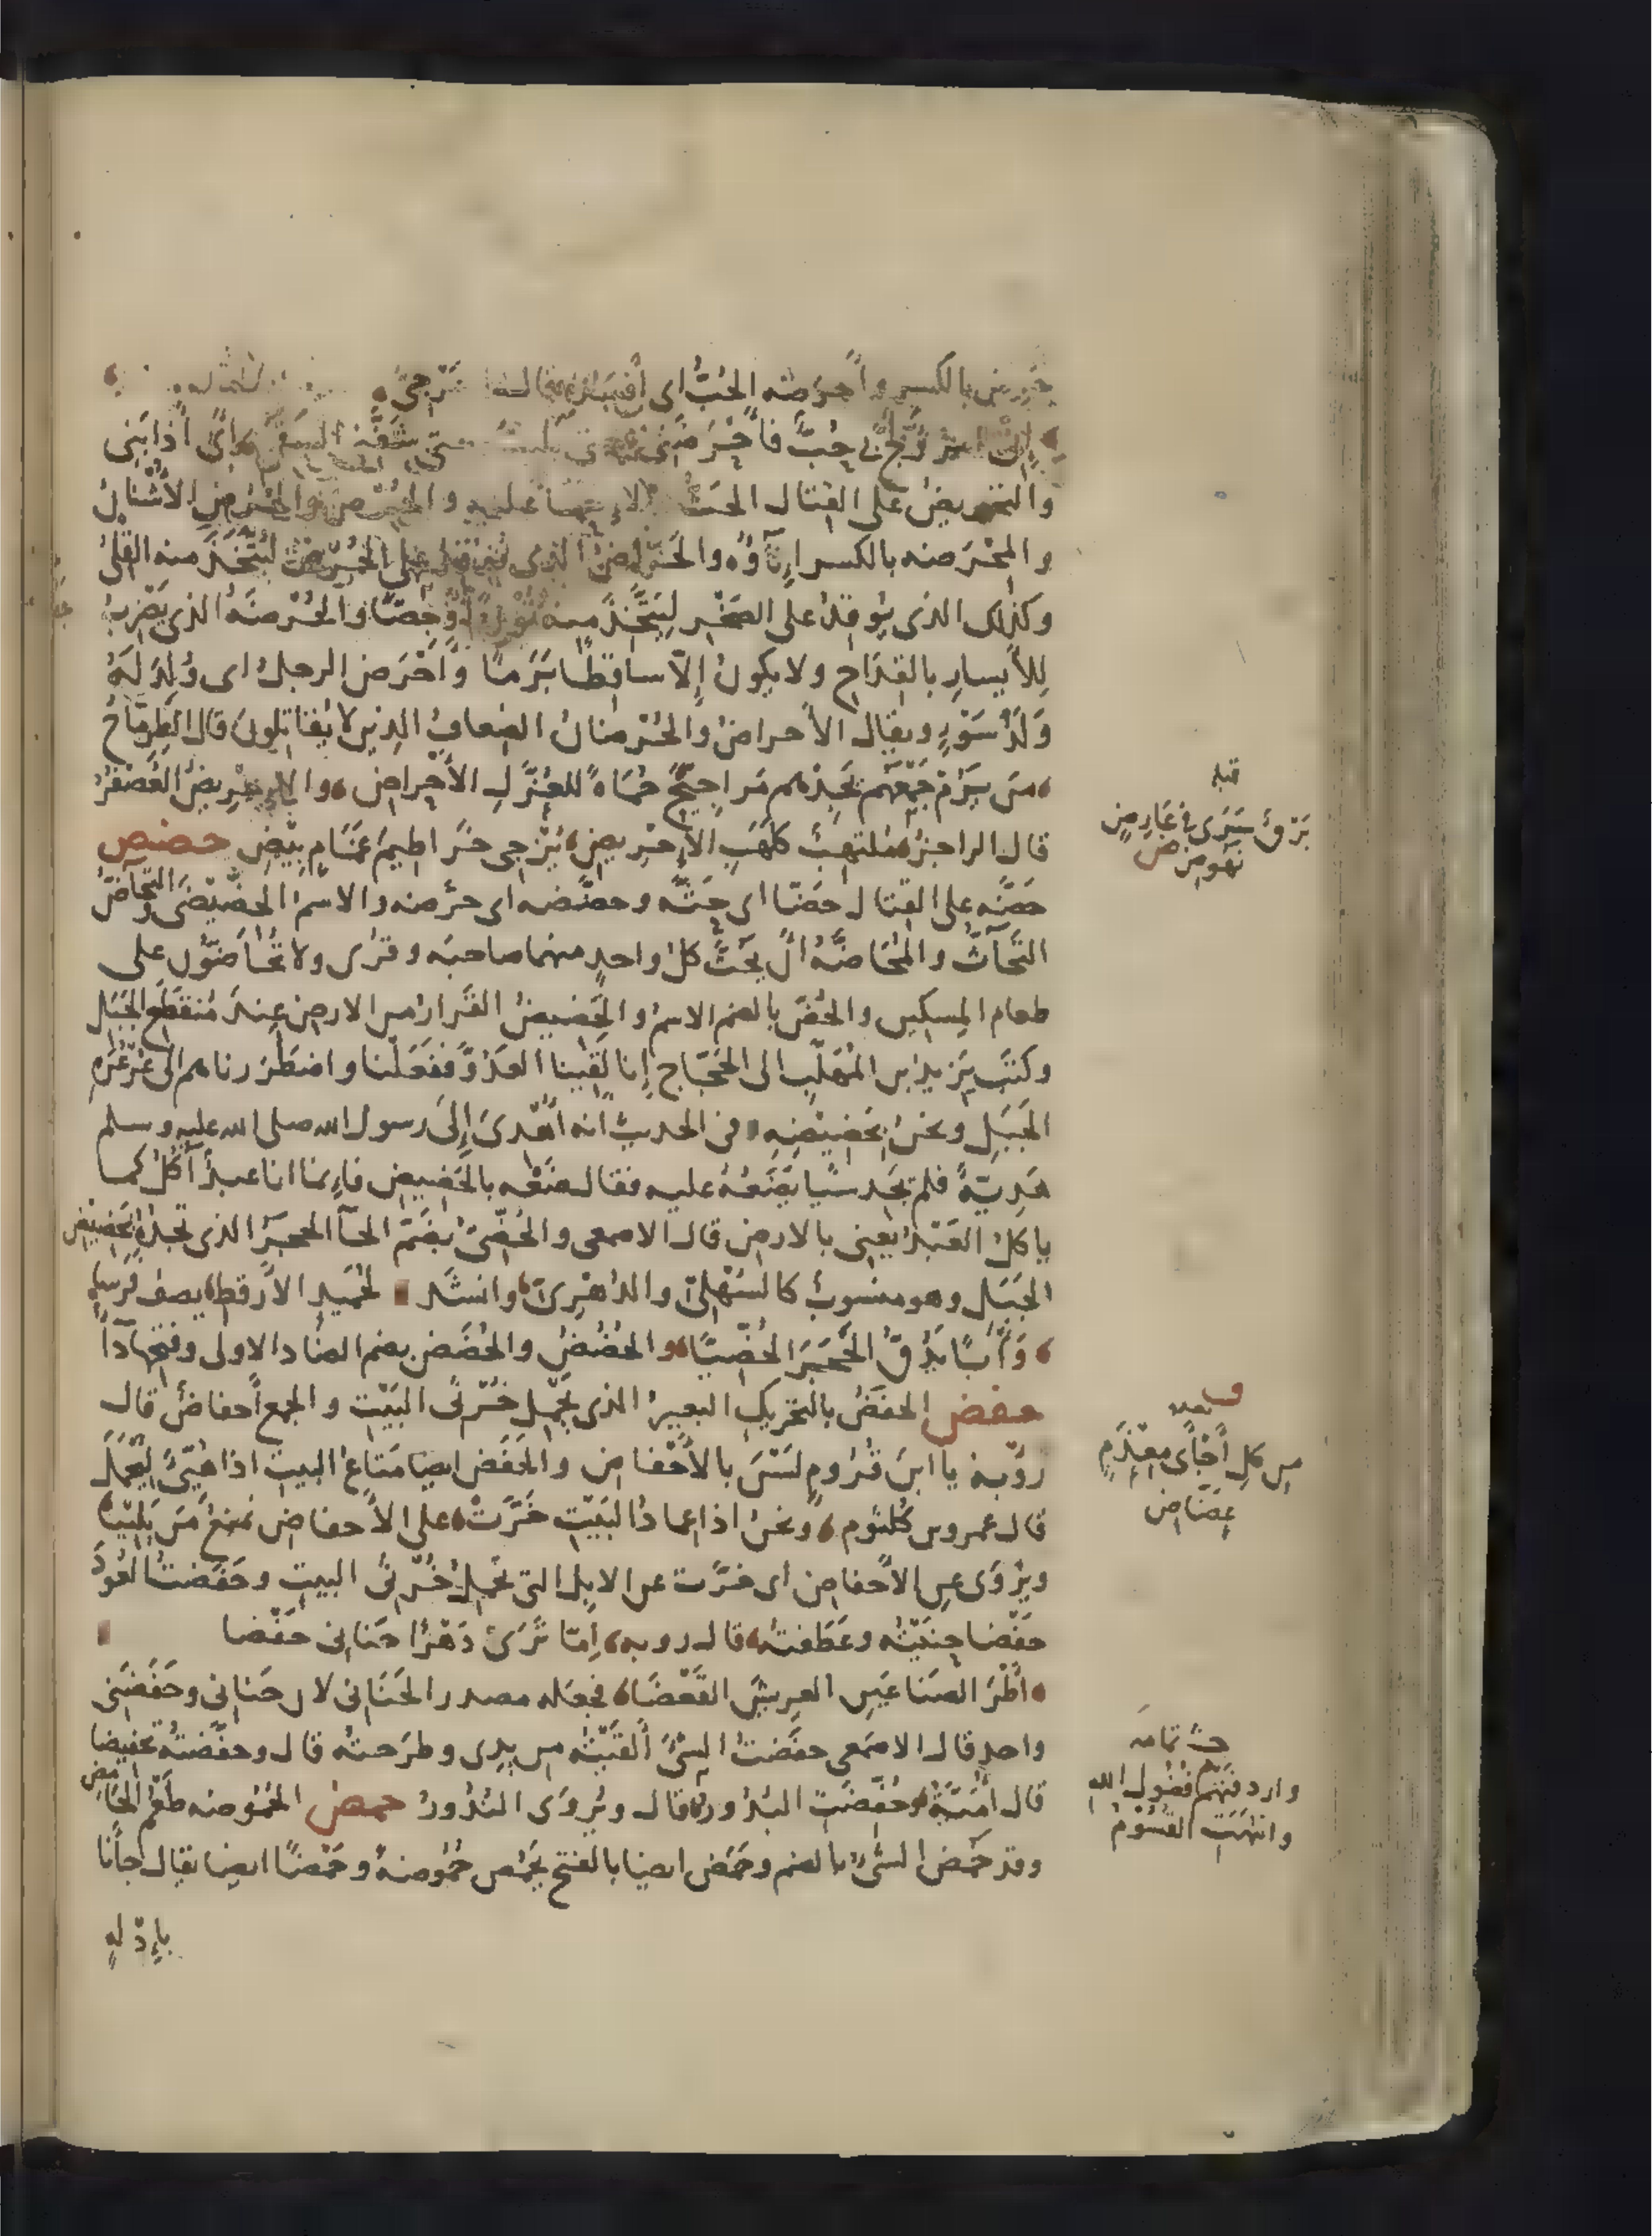 حَرِضَ بالكسر وأَحْرَضَه الحُبُّ اى أَفْسَدَهُ قال العَرْجِىُّ
إِنِّى امْرُؤٌ لَجَّ بى حُبٌّ فأَحْرَضَنِى حتى بَلِيتُ حتى شَفَّنِى السَقَمُ اى أذابَنِى
والتحريضُ على القتال الحَثُّ والإِحْمَاءُ عليه والحُرُضُ والحُرْضُ الأُشْنانُ
والمِحْرَضَه بالكسر إِناؤُه والحَرَّاضُ الذى يُوقِدُ على الحُرْضِ لِيَتَّخِذَ منه القِلْىَ
وكذلك الذى يُوقِدُ على الصَخْرِ لِيَتَّخِذَ منه نُورَةً أَوْ جِصًّا والحُرْضَةُ الذى يَضْرِبُ
لِلأَيسارِ بالقِدَاحِ ولا يكونُ إِلّا ساقِطًا بَرَمًا وأَحْرَضَ الرجلُ اى وُلِدَ لَهُ
وَلَدُ سَوْءٍ ويقال الأحراضُ والحُرْضانُ الضِعافُ الذين لا يُقاتِلونَ قال الطِرِمَّاحُ
مَن يَرُمْ جَمْعَهُم يَجِدْهم مَراجِيحَ حُمَاةً للعُزَّلِ الأَحْراضِ والإِحْرِيضُ العُصْفُرُ
قال الراجز مُلتهِبٌ كلَهَبِ الإِحْرِيضِ يُزْجِى خَراطيمَ غَمَامٍ بِيْضِ حضض
حَضَّه على القتال حَضّا اى حَثَّه وحضَّضه اى حرَّضه والاسم الحِضِّيْضَى والتَّحاضّ
التَحَاثُّ والمُحَاضَّةُ أنْ يَحُثَّ كلُّ واحدٍ منهما صاحبَه وقرى ولا تَحَاضُّون على
طعام المِسكين والحُضّ بالضم الاسمُ والحَضيضُ القَرارُ من الارض عِندَ مُنقَطَعِ الجَبَلِ
وكَتَبَ يَزيد بن المُهَلَّبِ الى الحَجّاج إنا لَقِينا العَدُوَّ فَفَعَلْنا واضطَرَرناهم الى عُرْعُرَةِ
الجَبَلِ ونحنُ بِحَضِيْضِهِ وفى الحديث أنه أَهْدَى إلى رسول الله صلى الله عليه وسلم
هَدِيّةً فلم يَجد شيًا يَضَعُهُ عليه فقال ضَعْه بالحَضيضِ فإِنما انا عبدٌ آكُلُ كما
ياكلُ العَبْدُ يَعنِى بالارض قال الاصمعى والحُضِّىُّ بضَمّ الحآ الحجَرُ الذى تجدُه بِحَضيضِ
الجَبَلِ وهو منسوبٌ كالسُهْلِىّ والدُهْرِىّ وانشَد لحُمَيدٍ الأَرقطِ يصف فَرَسًا
وَأْبًا يَدُقُّ الحَجَرَ الحُضِّيَّا والحُضُضُ والحُضَض بضم الضاد الاولى وفتحها دآءٌ
حفض الحَفَضُ بالتحريكِ البعيرُ الذى يَحْمِلُ خُرْثِىَّ البَيْتِ والجمع أحفاضٌ قال
رؤبة يا ابنَ قُرُومٍ لَسْنَ بالأَحْفاضِ والحَفَض ايضا مَتاعُ البيت اذا هُيِّئَ لِيُحْمَلَ
قال عمرو بن كُلثوم ونحنُ اذا عِمادُ البَيْتِ خَرَّتْ على الأحفاضِ نَمنَعُ مَن يَلِيْنَا
ويُرْوَى عن الأحفاضِ اى خرَّت عن الابل التى تَحْمِلُ خُرْثِىَّ البيتِ وحَفَضتُ العُودَ
حَفْضا حنَيْتُه وعَطَفتُه قال رؤبه إِمّا تَرَىْ دَهْرًا حَنانِى حَفْضا
أَطْرَ الصَناعَينِ العريشَ القَعْضَا فجعَله مصدر الحَنَانِى لان حَنانِى وحَفَضَنِى
واحد قال الاصمَعى حفَضتُ الشىَّ أَلقَيْتُه من يدِى وطرَحتُه قال وحفَّضتُه تحفيضا
قال أُمَيَّةُ وحُفِّضَتِ البُدورُ قال ويُروَى النُذُورُ حمض الحُمُوضه طَعْمُ الحامِضِ
وقد حَمُضَ الشىُ بالضم وحَمَضَ ايضا بالفتح يَحْمُض حُمُوضةً وحَمْضًا ايضا يقال جانا
بإِدْلَةٍ
قبله
بَرْقٌ سَرَى فى عَارِضٍ
نَهوضِ
بعده
من كلِ أَجْأَى مِعْذَمٍ
عِضَّاضِ
تمامه
واردفَتْهم فُضُول الله
وانتَهَتِ القُسُوْمُ